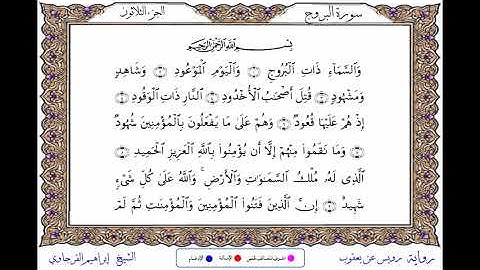 سورة البروج
الجزء الثلاثون
بِسْمِ اللَّهِ الرَّحْمَٰنِ الرَّحِيمِ
وَالسَّمَاءِ ذَاتِ الْبُرُوجِ ١ وَالْيَوْمِ الْمَوْعُودِ ٢ وَشَاهِدٍ
وَمَشْهُودٍ ٣ قُتِلَ أَصْحَٰبُ الْأُخْدُودِ ٤ النَّارِ ذَاتِ الْوَقُودِ ٥
إِذْ هُمْ عَلَيْهَا قُعُودٌ ٦ وَهُمْ عَلَىٰ مَا يَفْعَلُونَ بِالْمُؤْمِنِينَ شُهُودٌ
٧ وَمَا نَقَمُوا مِنْهُمْ إِلَّا أَن يُؤْمِنُوا بِاللَّهِ الْعَزِيزِ الْحَمِيدِ ٨
الَّذِي لَهُ مُلْكُ السَّمَٰوَٰتِ وَالْأَرْضِ ۚ وَاللَّهُ عَلَىٰ كُلِّ شَيْءٍ
شَهِيدٌ ٩ إِنَّ الَّذِينَ فَتَنُوا الْمُؤْمِنِينَ وَالْمُؤْمِنَٰتِ ثُمَّ لَمْ
رواية رويس عن يعقوب
الإمالة
الإدغام
الشيخ إبراهيم الفرجاوي